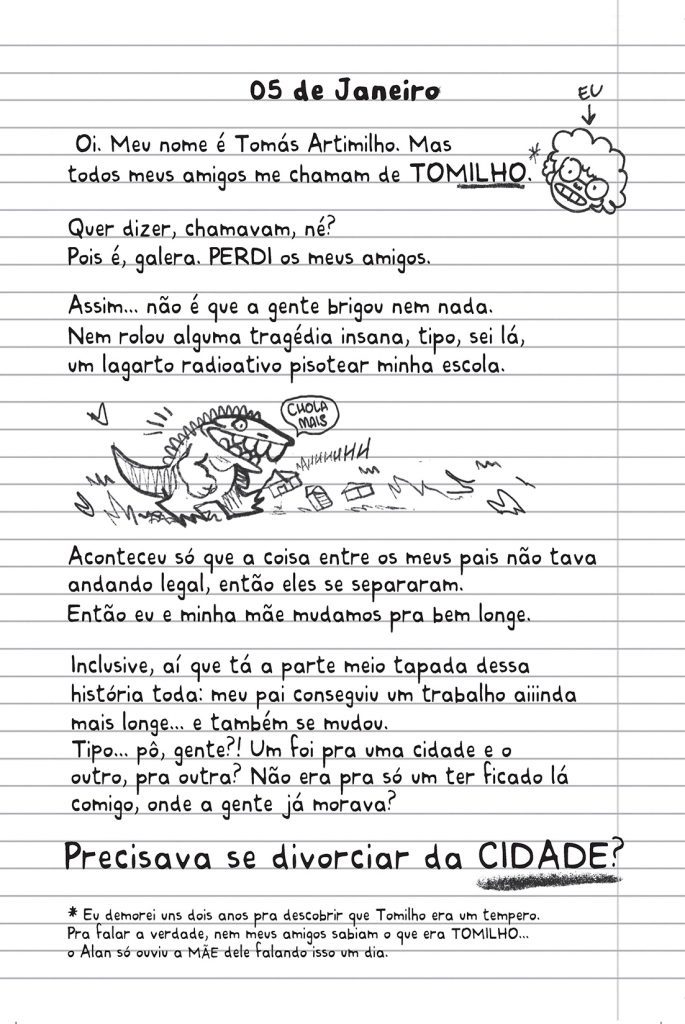 05 de Janeiro
EU
Oi. Meu nome é Tomás Artimilho. Mas
todos meus amigos me chamam de TOMILHO.*
Quer dizer, chamavam, né?
Pois é, galera. PERDI os meus amigos.
Assim... não é que a gente brigou nem nada.
Nem rolou alguma tragédia insana, tipo, sei lá,
um lagarto radioativo pisotear minha escola.
CHOLA
MAIS
AIUUUUHH
Aconteceu só que a coisa entre os meus pais não tava
andando legal, então eles se separaram.
Então eu e minha mãe mudamos pra bem longe.
Inclusive, aí que tá a parte meio tapada dessa
história toda: meu pai conseguiu um trabalho aiiinda
mais longe... e também se mudou.
Tipo... pô, gente?! Um foi pra uma cidade e o
outro, pra outra? Não era pra só um ter ficado lá
comigo, onde a gente já morava?
Precisava se divorciar da CIDADE?
* Eu demorei uns dois anos pra descobrir que Tomilho era um tempero.
Pra falar a verdade, nem meus amigos sabiam o que era TOMILHO...
o Alan só ouviu a MÃE dele falando isso um dia.